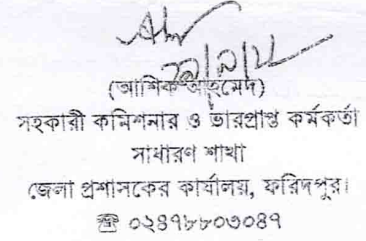 (আশিক আহমেদ)
সহকারী কমিশনার ও ভারপ্রাপ্ত কর্মকর্তা
সাধারণ শাখা
জেলা প্রশাসকের কার্যালয়, ফরিদপুর।
☎ ০২৪৭৮৮০৩০৪৭